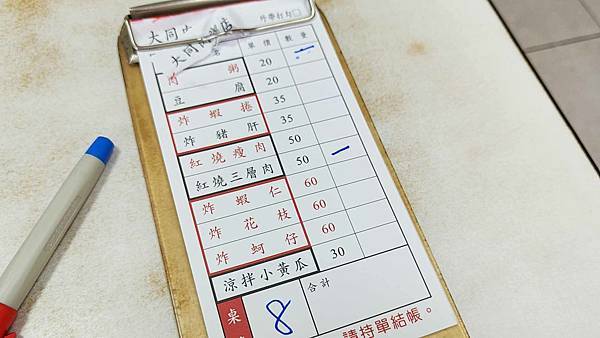 大同
外帶打勾□
名 單價 數量
肉粥 20 二
豆腐 20
炸蝦捲 35
炸豬肝 35
紅燒瘦肉 50
紅燒三層肉 50 一
炸蝦仁 60
炸花枝 60
炸蚵仔 60
涼拌小黃瓜 30
桌 8 合計
請持單結帳。